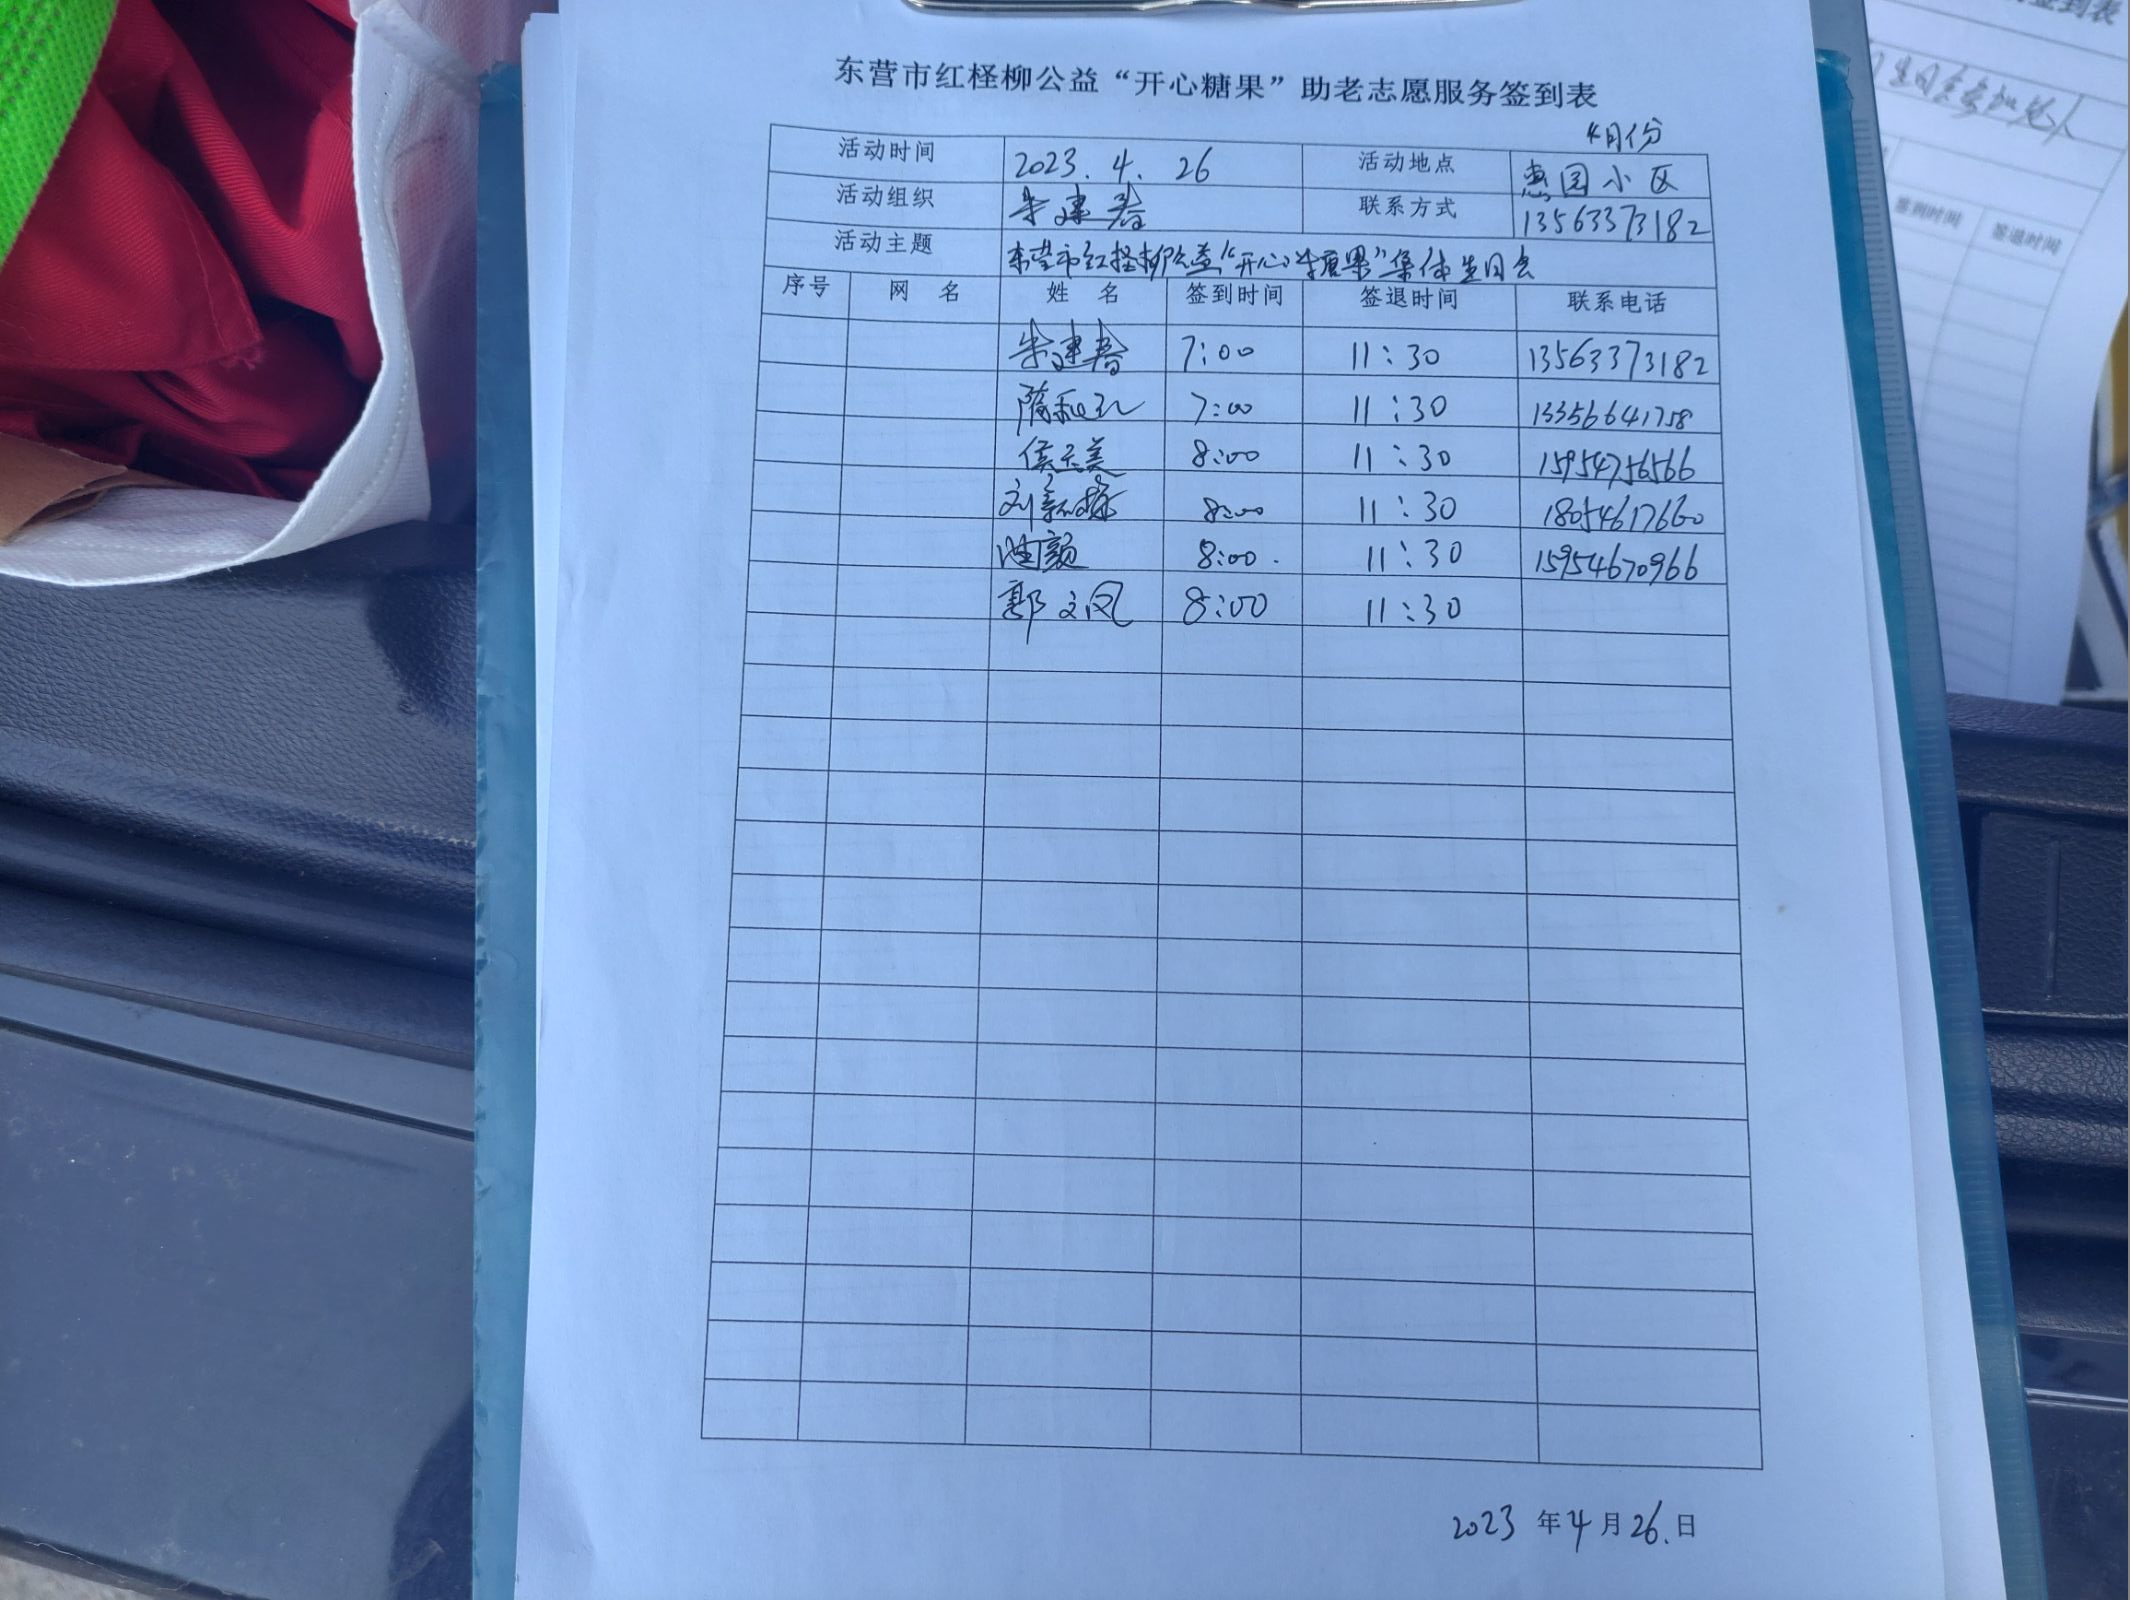 东营市红柽柳公益“开心糖果”助老志愿服务签到表
4月份
活动时间 2023.4.26 活动地点 惠园小区
活动组织 朱建春 联系方式 13563373182
活动主题 东营市红柽柳公益“开心糖果”集体生日会
序号 网 名 姓 名 签到时间 签退时间 联系电话
朱建春 7:00 11:30 13563373182
7:00 11:30 13356641758
侯玉美 8:00 11:30 15954756566
8:00 11:30 18054617660
8:00 11:30 15954670966
郭文凤 8:00 11:30
2023 年 4 月 26. 日
签到表
生日会参加老人
签到时间 签退时间